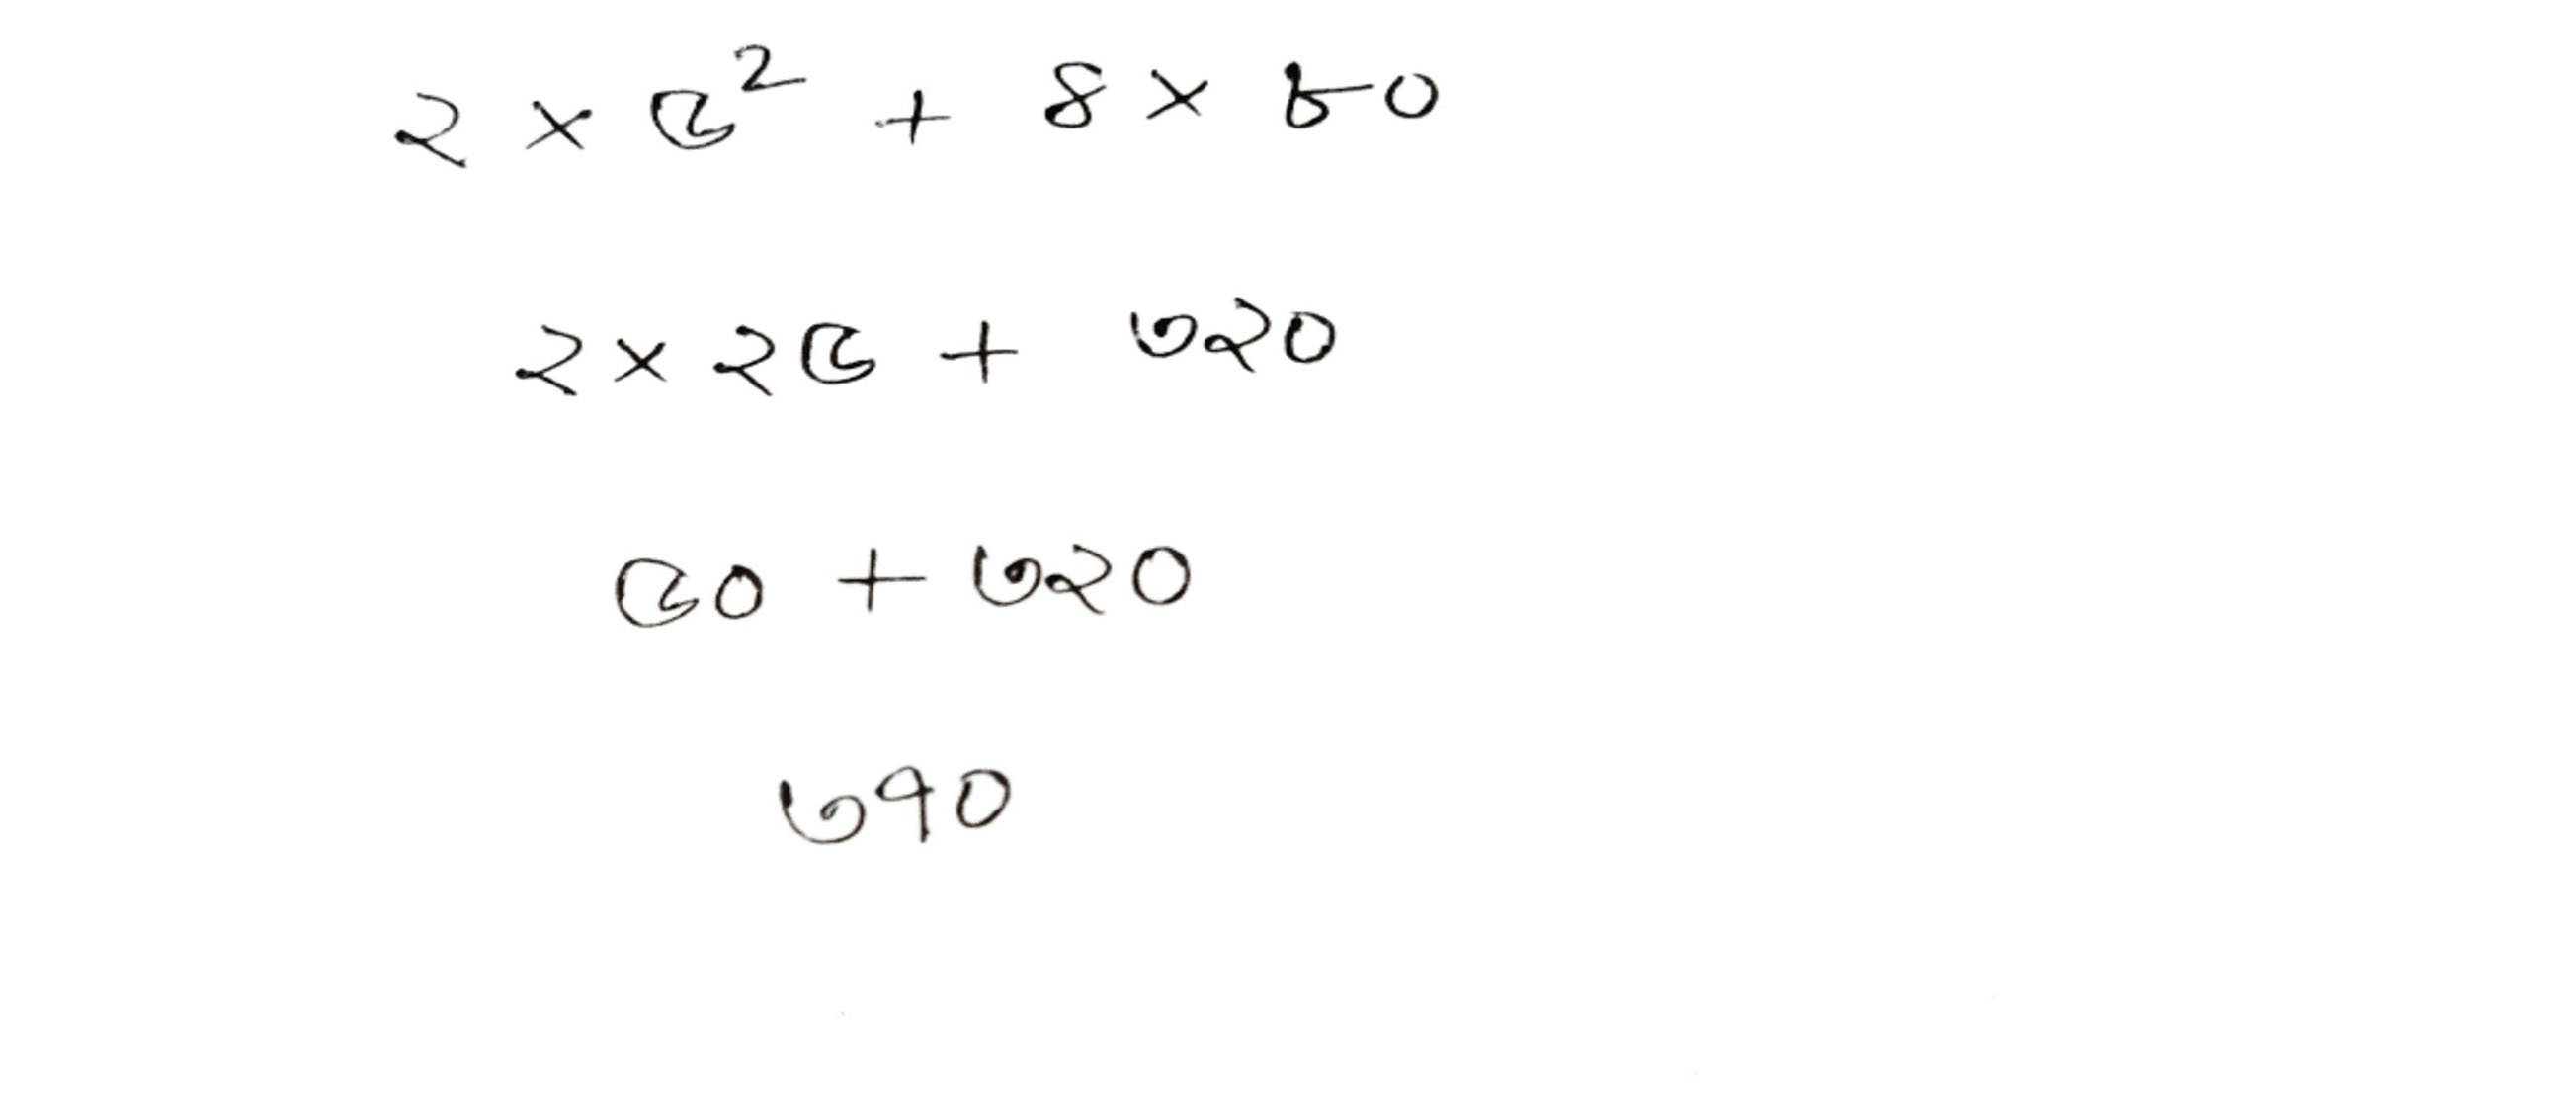 ২ × ৫² + ৪ × ৮০
২ × ২৫ + ৩২০
৫০ + ৩২০
৩৭০